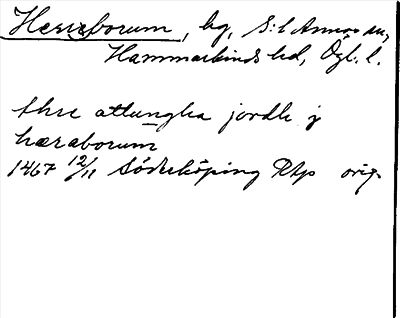 Herrborum, by, S:t Annas sn,
Hammarkinds hd, Ögl. l.
thre attungha jordh j
hæraborum
1467 12/11 Söderköping RAp orig.